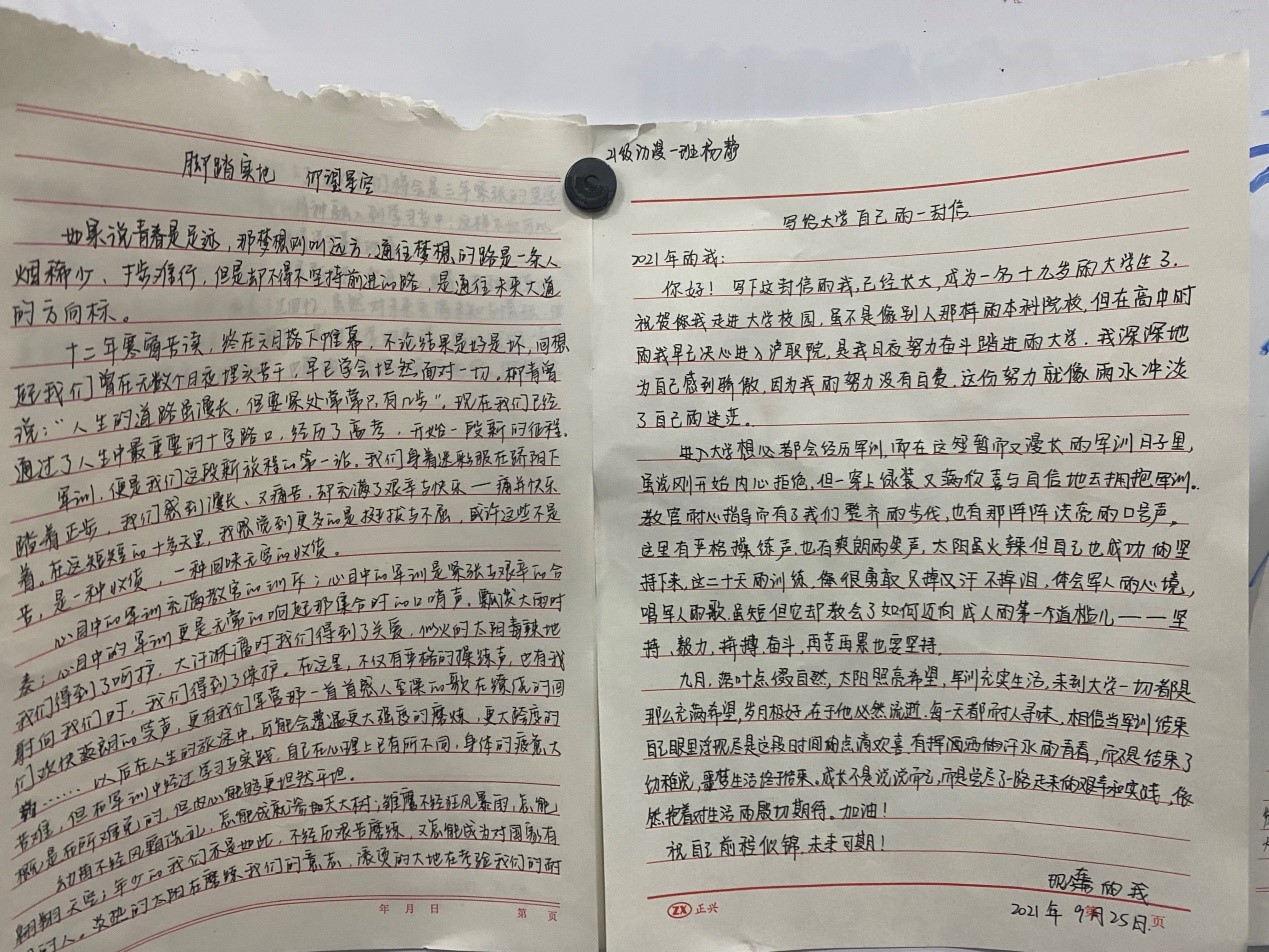 脚踏实地 仰望星空
如果说青春是足迹，那梦想则叫远方，通往梦想的路是一条人
烟稀少、寸步难行，但是却不得不坚持前进的路，是通往未来大道
的方向标。
十二年寒窗苦读，终在六月落下帷幕，不论结果是好是坏，回想
起我们曾在无数个日夜埋头苦干，早已学会坦然面对一切。柳青曾
说：“人生的道路虽漫长，但要紧处常常只有几步”。现在我们已经
通过了人生中最重要的十字路口，经历了高考，开始一段新的征程。
军训，便是我们这段新旅程的第一站。我们身着迷彩服在骄阳下
踏着正步，我们感到漫长、又痛苦，却充满了艰辛与快乐——痛并快乐
着。在这短短的十多天里，我感觉到更多的是挺拔与不屈，或许这些不是
苦，是一种收侯，一种回味无穷的收侯。
心目中的军训充满教官的训斥；心目中的军训是紧张与艰辛的合
奏；心目中的军训更是无常的响起那集合时的口哨声。飘泼大雨时
我们得到了呵护，大汗淋漓时我们得到了关爱，似火的太阳毒辣地
射向我们时，我们得到了保护。在这里，不仅有严格的操练声，也有我
们欢快爽朗的笑声，更有我们军营那一首首感人至深的歌在缭低的回
以后在人生的旅途中，可能会遭遇更大强度的磨炼，更大跨度的
苦难，但在军训中经过学习与实践，自己在心理上已有所不同，身体的疲惫大
概是在所难免的，但内心能够更坦然平坦。
幼苗不经风霜洗礼，怎能成就参天大树；雏鹰不经狂风暴雨，怎能
翱翔天空；年少的我们亦是如此，不经历艰苦磨练，又怎能成为对国家有
的人。炎热的太阳在磨练我们的意志，滚烫的大地在考验我们的耐
年 月 日 第 页
21级动漫一班杨静
写给大学自己的一封信
2021年的我：
你好！写下这封信的我，已经长大，成为一名十九岁的大学生了，
祝贺你我走进大学校园，虽不是像别人那样的本科院校，但在高中时
的我早已决心进入泸职院，是我日夜努力奋斗踏进的大学。我深深地
为自己感到骄傲，因为我的努力没有白费，这份努力就像雨水冲淡
了自己的迷茫。
进入大学想必都会经历军训，而在这短暂而又漫长的军训日子里，
虽说刚开始内心拒绝，但一穿上绿装又满欣喜与自信地去拥抱军训。
教官耐心指导而有了我们整齐的步伐，也有那阵阵洪亮的口号声。
这里有严格操练声，也有爽朗的笑声，太阳虽火辣但自己也成功的坚
持下来，这二十天的训练，你很勇敢只掉汉汗不掉泪，体会军人的心境，
唱军人的歌，虽短但它却教会了如何迈向成人的第一个道槛儿——坚
持、毅力、拼搏、奋斗，再苦再累也要坚持。
九月，落叶点缀自然，太阳照亮希望，军训充实生活，来到大学一切都是
那么充满希望，岁月极好，在于他必然流逝，每一天都耐人寻味，相信当军训结束
自己眼里浮现尽是这段时间的点滴欢喜，有挥洒洒的汗水的青春，而不是结束了
幼稚说，噩梦生活终于结束。成长不是说说而已，而是尝尽了一路走来的艰辛和实践，依
然抱着对生活的殷切期待。加油！
祝自己前程似锦，未来可期！
现在的我
2021年9月25日
ZX 正兴 第 页